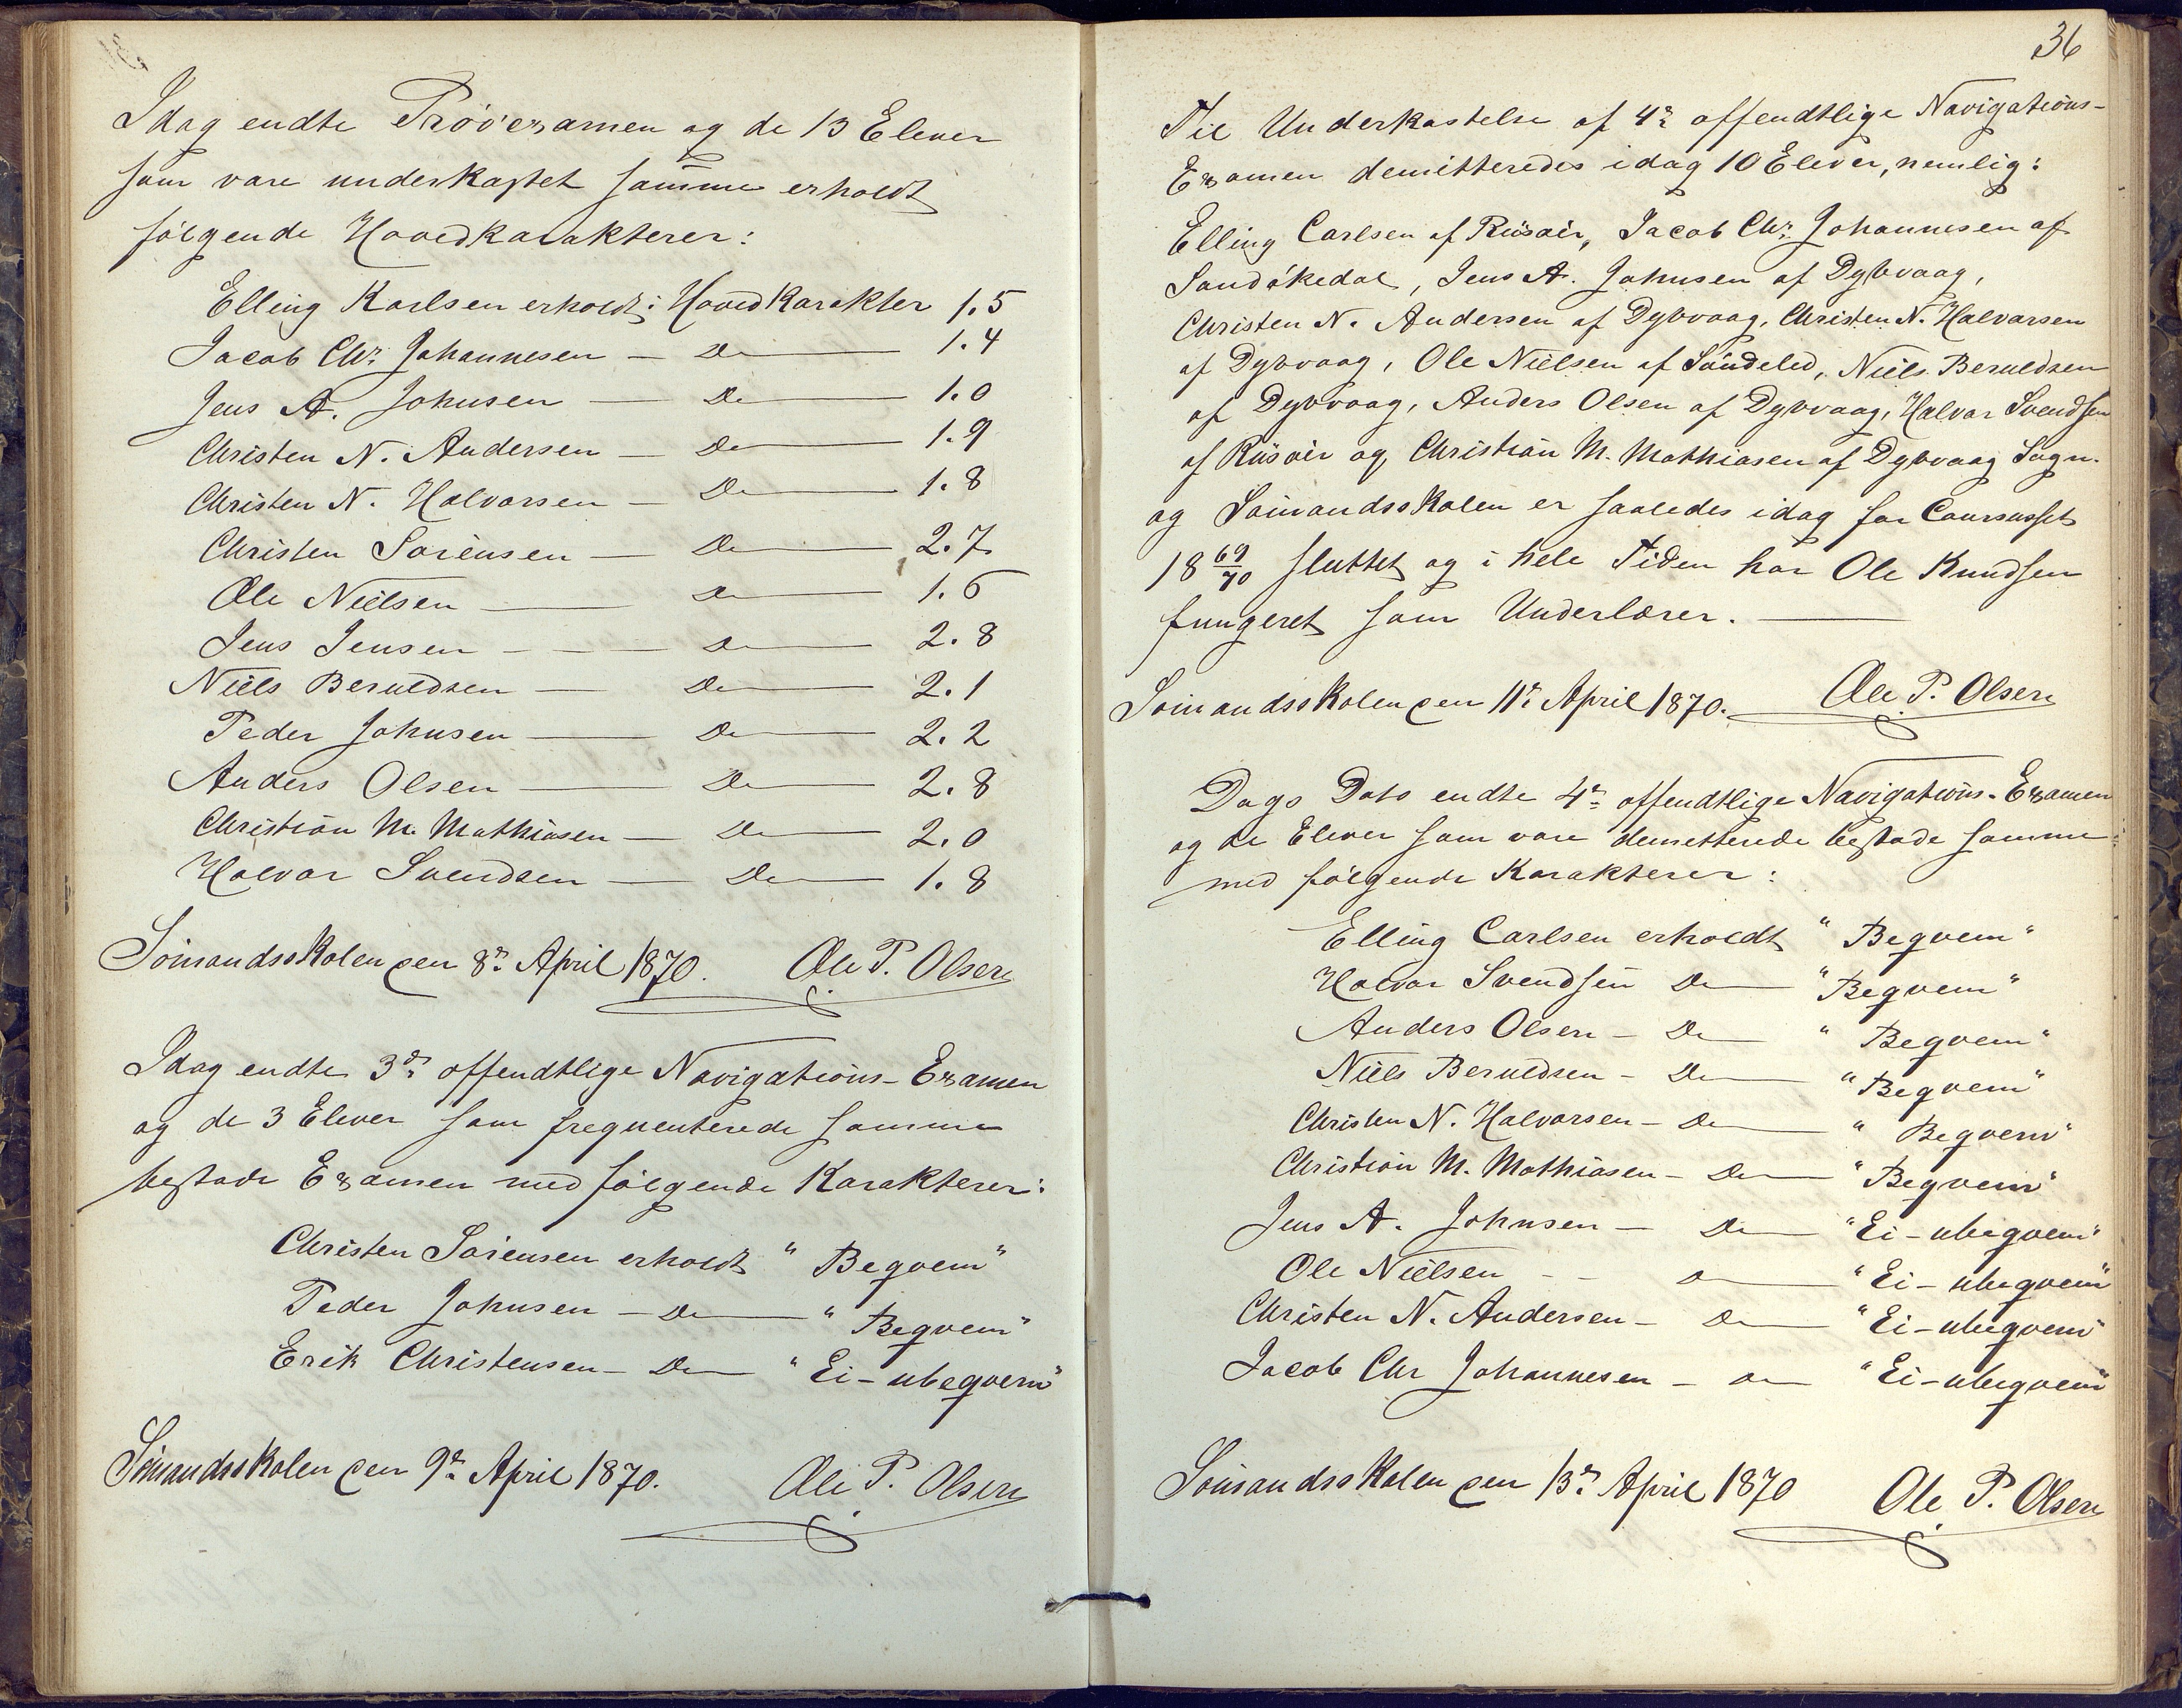 Idag endte Prøvexamen og de 13 Elever
som vare underkastet samme erholdt
følgende Hovedkarakterer:
Elling Karlsen erholdt: Hovedkarakter 1.5
Jacob Chr. Johannesen — Do — 1.4
Jens A. Johnsen — Do — 1.0
Christen N. Andersen — Do — 1.9
Christen N. Halvorsen — Do — 1.8
Christen Sörensen — Do — 2.7
Ole Nielsen — Do — 1.6
Jens Jensen — Do — 2.8
Niels Beruldsen — Do — 2.1
Peder Johnsen — Do — 2.2
Anders Olsen — Do — 2.8
Christian M. Mathiasen — Do — 2.0
Halvor Svendsen — Do — 1.8
Sömandsskolen den 8de April 1870. Ole P. Olsen
Idag endte 3de offendtlige Navigations-Examen
og de 3 Elever som frequenterede samme
bestode Examen med følgende Karakterer:
Christen Sörensen erholdt "Beqvem"
Peder Johnsen — Do — "Beqvem"
Erik Christensen — Do — "Ei-ubeqvem"
Sömandsskolen den 9de April 1870. Ole P. Olsen
36
Til Underkastelse af 4de offendtlige Navigations-
Examen demitteredes idag 10 Elever, nemlig:
Elling Carlsen af Riisöer, Jacob Chr. Johannesen af
Sandökedal, Jens A. Johnsen af Dybvaag,
Christen N. Andersen af Dybvaag, Christen N. Halvorsen
af Dybvaag, Ole Nielsen af Söndeled, Niels Beruldsen
af Dybvaag, Anders Olsen af Dybvaag, Halvor Svendsen
af Riisöer og Christian M. Mathiasen af Dybvaag Sogn.
og Sömandsskolen er saaledes idag for Coursusset
1869/70 sluttet og i hele Tiden har Ole Knudsen
fungeret som Underlærer. —
Sömandsskolen den 11te April 1870. Ole P. Olsen
Dags Dato endte 4de offendtlige Navigations-Examen
og de Elever som vare demitterede bestode samme
med følgende Karakterer:
Elling Carlsen erholdt "Beqvem"
Halvor Svendsen Do — "Beqvem"
Anders Olsen — Do — "Beqvem"
Niels Beruldsen — Do — "Beqvem"
Christen N. Halvorsen — Do — "Beqvem"
Christian M. Mathiasen — Do — "Beqvem"
Jens A. Johnsen — Do — "Ei-ubeqvem"
Ole Nielsen — Do — "Ei-ubeqvem"
Christen N. Andersen — Do — "Ei-ubeqvem"
Jacob Chr Johannesen — Do — "Ei-ubeqvem"
Sömandsskolen den 13de April 1870 Ole P. Olsen